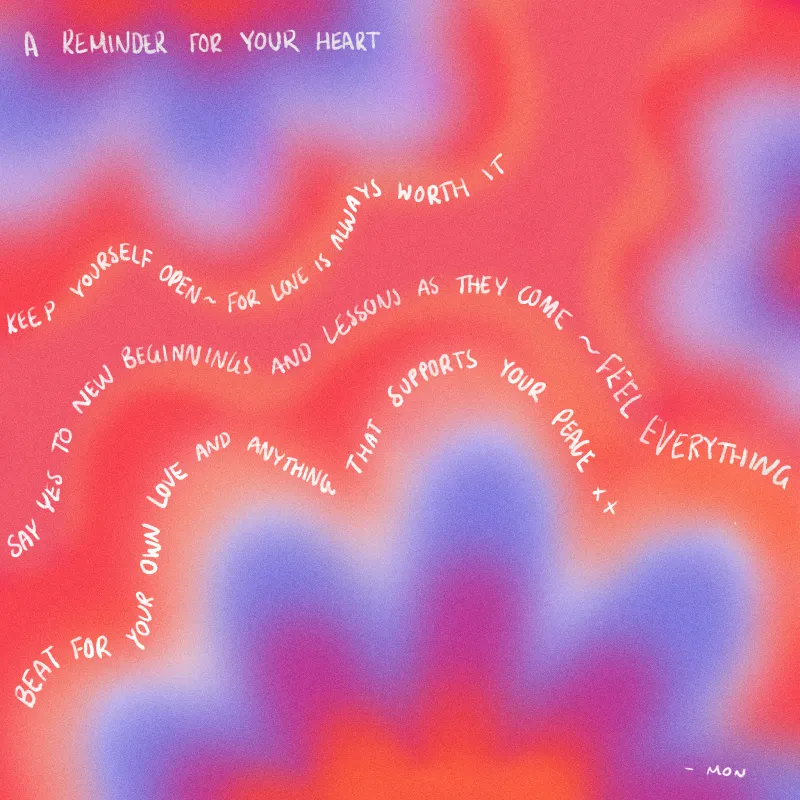 A REMINDER FOR YOUR HEART
KEEP YOURSELF OPEN~ FOR LOVE IS ALWAYS WORTH IT
SAY YES TO NEW BEGINNINGS AND LESSONS AS THEY COME ~ FEEL EVERYTHING
BEAT FOR YOUR OWN LOVE AND ANYTHING THAT SUPPORTS YOUR PEACE xx
- MON